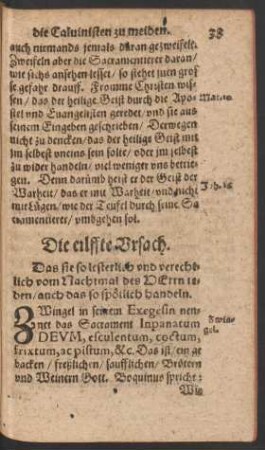 die Caluinisten zu melden. 38
auch niemands jemals daran gezweifelt.
Zweifeln aber die Sacramentierer daran/
wie sichs ansehen lesset/ so stehet jnen gros
se gefahr drauff. Fromme Christen wis
sen/ das der heilige Geist durch die Apo
stel vnd Euangelisten geredet/ vnd sie aus
seinem Eingeben geschrieben/ Derwegen
nicht zu dencken/ das der heilige Geist mit
jm selbest vneins sein solte/ oder jm selbest
zu wider handeln/ viel weniger vns betrie
gen. Denn darümb heist er der Geist der
Warheit/ das er mit Warheit/ vnd nicht
mit Lügen/ wie der Teufel durch seine Sa
cramentierer/ vmbgehen sol.
Die eilffte Vrsach.
Das sie so lesterlich vnd verecht
lich vom Nachtmal des HErrn re
den/ auch das so spötlich handeln.
ZWingel in seinem Exegesin nen
net das Sacrament Inpanatum
DEVM, esculentum, coctum,
frixtum, ac pistum, &c. Das ist/ ein ge
backen/ freßlichen/ saufflichen/ Brötern
vnd Weinern Gott. Boquinus spricht:
Wie